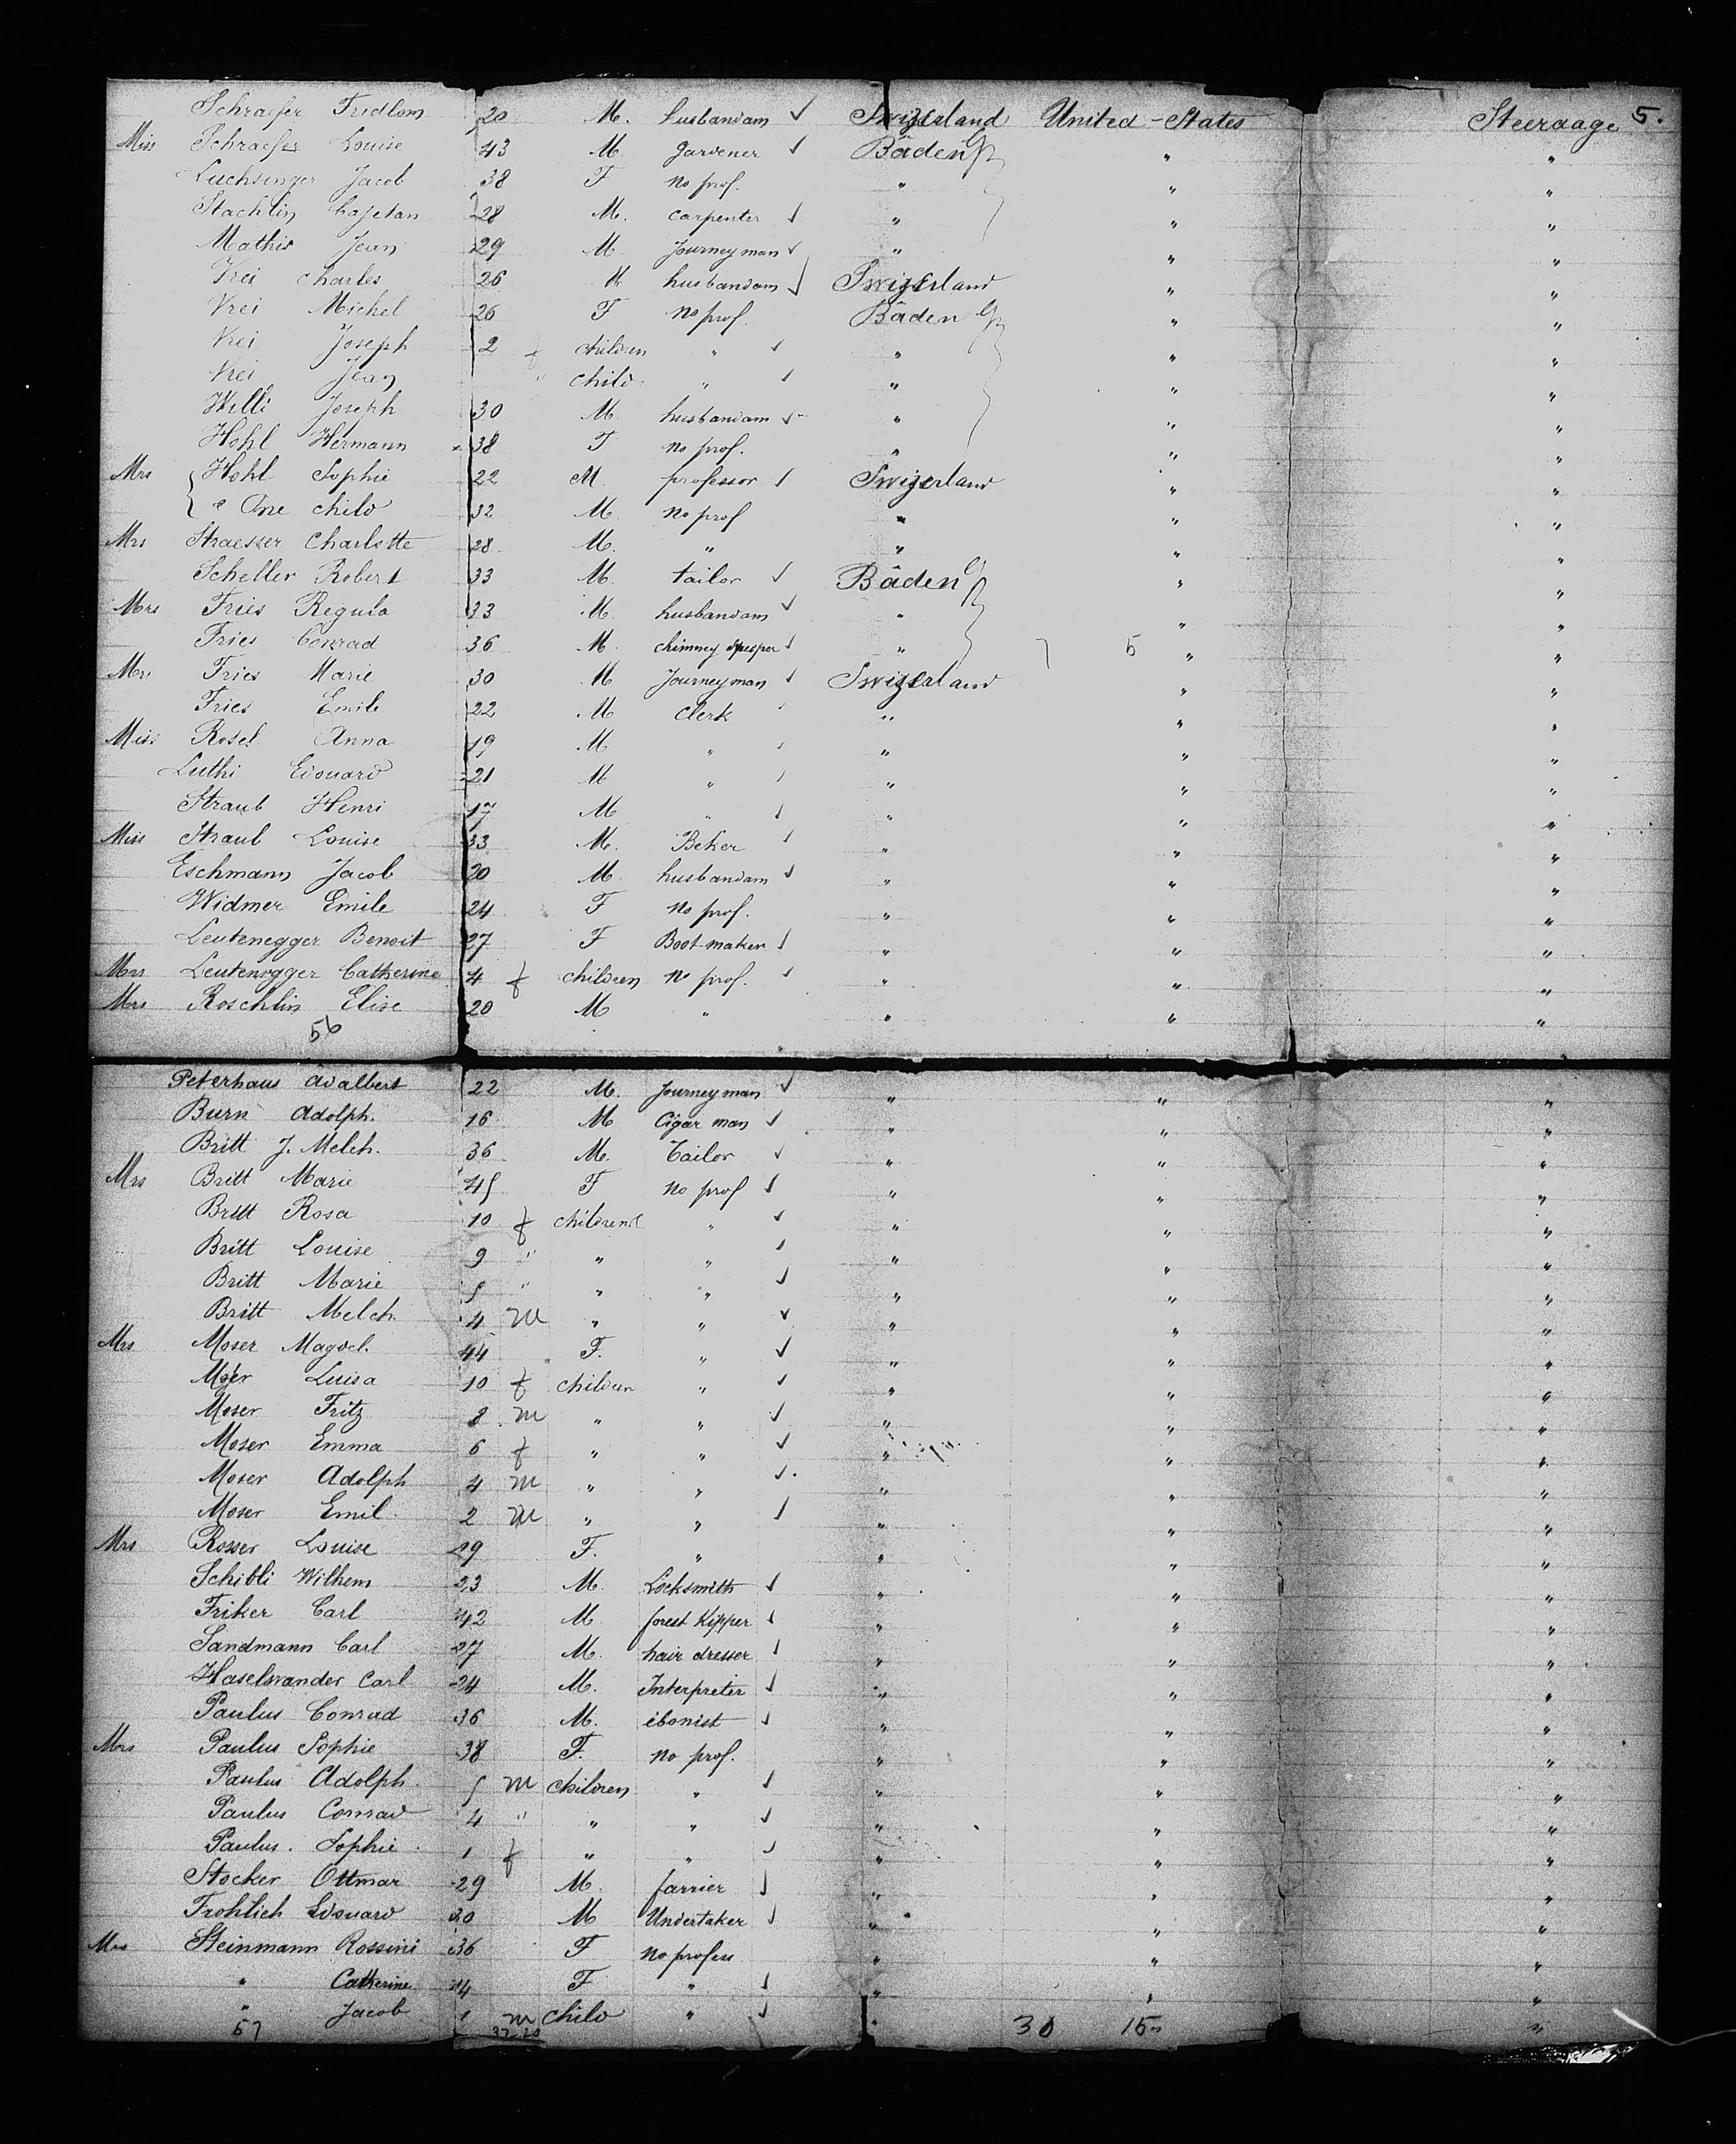 5.
Schraefer Fridlom 20 M. husbandam ✓ Swizerland United-States Steeraage
Miss Schraefer Louise 43 M. gardener ✓ Bâden " "
Luchsinger Jacob 38 F no prof. " " "
Stachlin Cajetan 28 M. carpenter ✓ " " "
Mathis Jean 29 M Journeyman ✓ " " "
Vrei Charles 26 M husbandam ✓ Swizerland " "
Vrei Michel 26 F no prof. Bâden " "
Vrei Joseph 2 f children " ✓ " " "
Vrei Jean " child " ✓ " " "
Willi Joseph 30 M husbandam ✓ " " "
Hohl Hermann 38 F no prof. " " "
Mrs Hohl Sophie 22 M. professor ✓ Swizerland " "
" One child 32 M. no prof " " "
Mrs Straesser Charlotte 28 M. " " " "
Scheller Robert 33 M. tailor ✓ Bâden " "
Mrs Fries Regula 33 M. husbandam ✓ " " "
Fries Conrad 36 M. chimney Spesper ✓ " 7 5 " "
Mrs Fries Marie 30 M Journeyman ✓ Swizerland " "
Fries Emile 22 M clerk ✓ " " "
Miss Rosel Anna 19 M " ✓ " " "
Luthi Edouard 21 M " ✓ " " "
Straub Henri 17 M " ✓ " " "
Miss Straub Louise 33 M. Beker ✓ " " "
Eschmann Jacob 20 M. husbandam ✓ " " "
Widmer Emile 24 F no prof. " " "
Leutenegger Benoit 27 F Boot-maker ✓ " " "
Mrs Leutenegger Catherine 4 f children no prof. ✓ " " "
Mrs Roschlin Elise 20 M " " " "
56
Peterhaus Adalbert 22 M. Journeyman ✓ " " "
Burn Adolph. 16 M Cigar man ✓ " " "
Britt J. Melch. 36 M. Tailor ✓ " " "
Mrs Britt Marie 45 F no prof ✓ " " "
Britt Rosa 10 f children " ✓ " " "
Britt Louise 9 " " " ✓ " " "
Britt Marie 5 " " " ✓ " " "
Britt Melch. 4 m " " ✓ " " "
Mrs Moser Magdel. 44 F. " ✓ " " "
Moser Luisa 10 f children " ✓ " " "
Moser Fritz 8 m " " ✓ " " "
Moser Emma 6 f " " ✓ " " "
Moser Adolph 4 m " " ✓ " " "
Moser Emil. 2 m " " ✓ " " "
Mrs Rosser Louise 29 F. " " " "
Schibli Wilhem 23 M. Locksmith ✓ " " "
Friker Carl 42 M. forest Kipper ✓ " " "
Sandmann Carl 27 M. hair dresser ✓ " " "
Haselwander Carl 24 M. Interpreter ✓ " " "
Paulus Conrad 36 M. ébonist ✓ " " "
Mrs Paulus Sophie 38 F. no prof. " " "
Paulus Adolph. 5 m children " ✓ " " "
Paulus Conrad 4 " " " ✓ " " "
Paulus. Sophie 1 f " " ✓ " " "
Stocker Ottmar 29 M. farrier ✓ " " "
Frohlich Edouard 30 M Undertaker ✓ " " "
Mrs Steinmann Rossini 36 F no profess " " "
" Catherine 14 F " ✓ " " "
" Jacob 1 m child " ✓ " " "
57 37-20 30 15